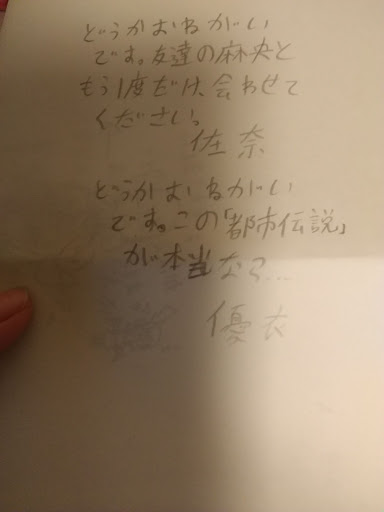 どうかおねがい
です。友達の麻央と
もう1度だけ、会わせて
ください。
佐奈
どうかおねがい
です。この「都市伝説」
が本当なら...
優衣